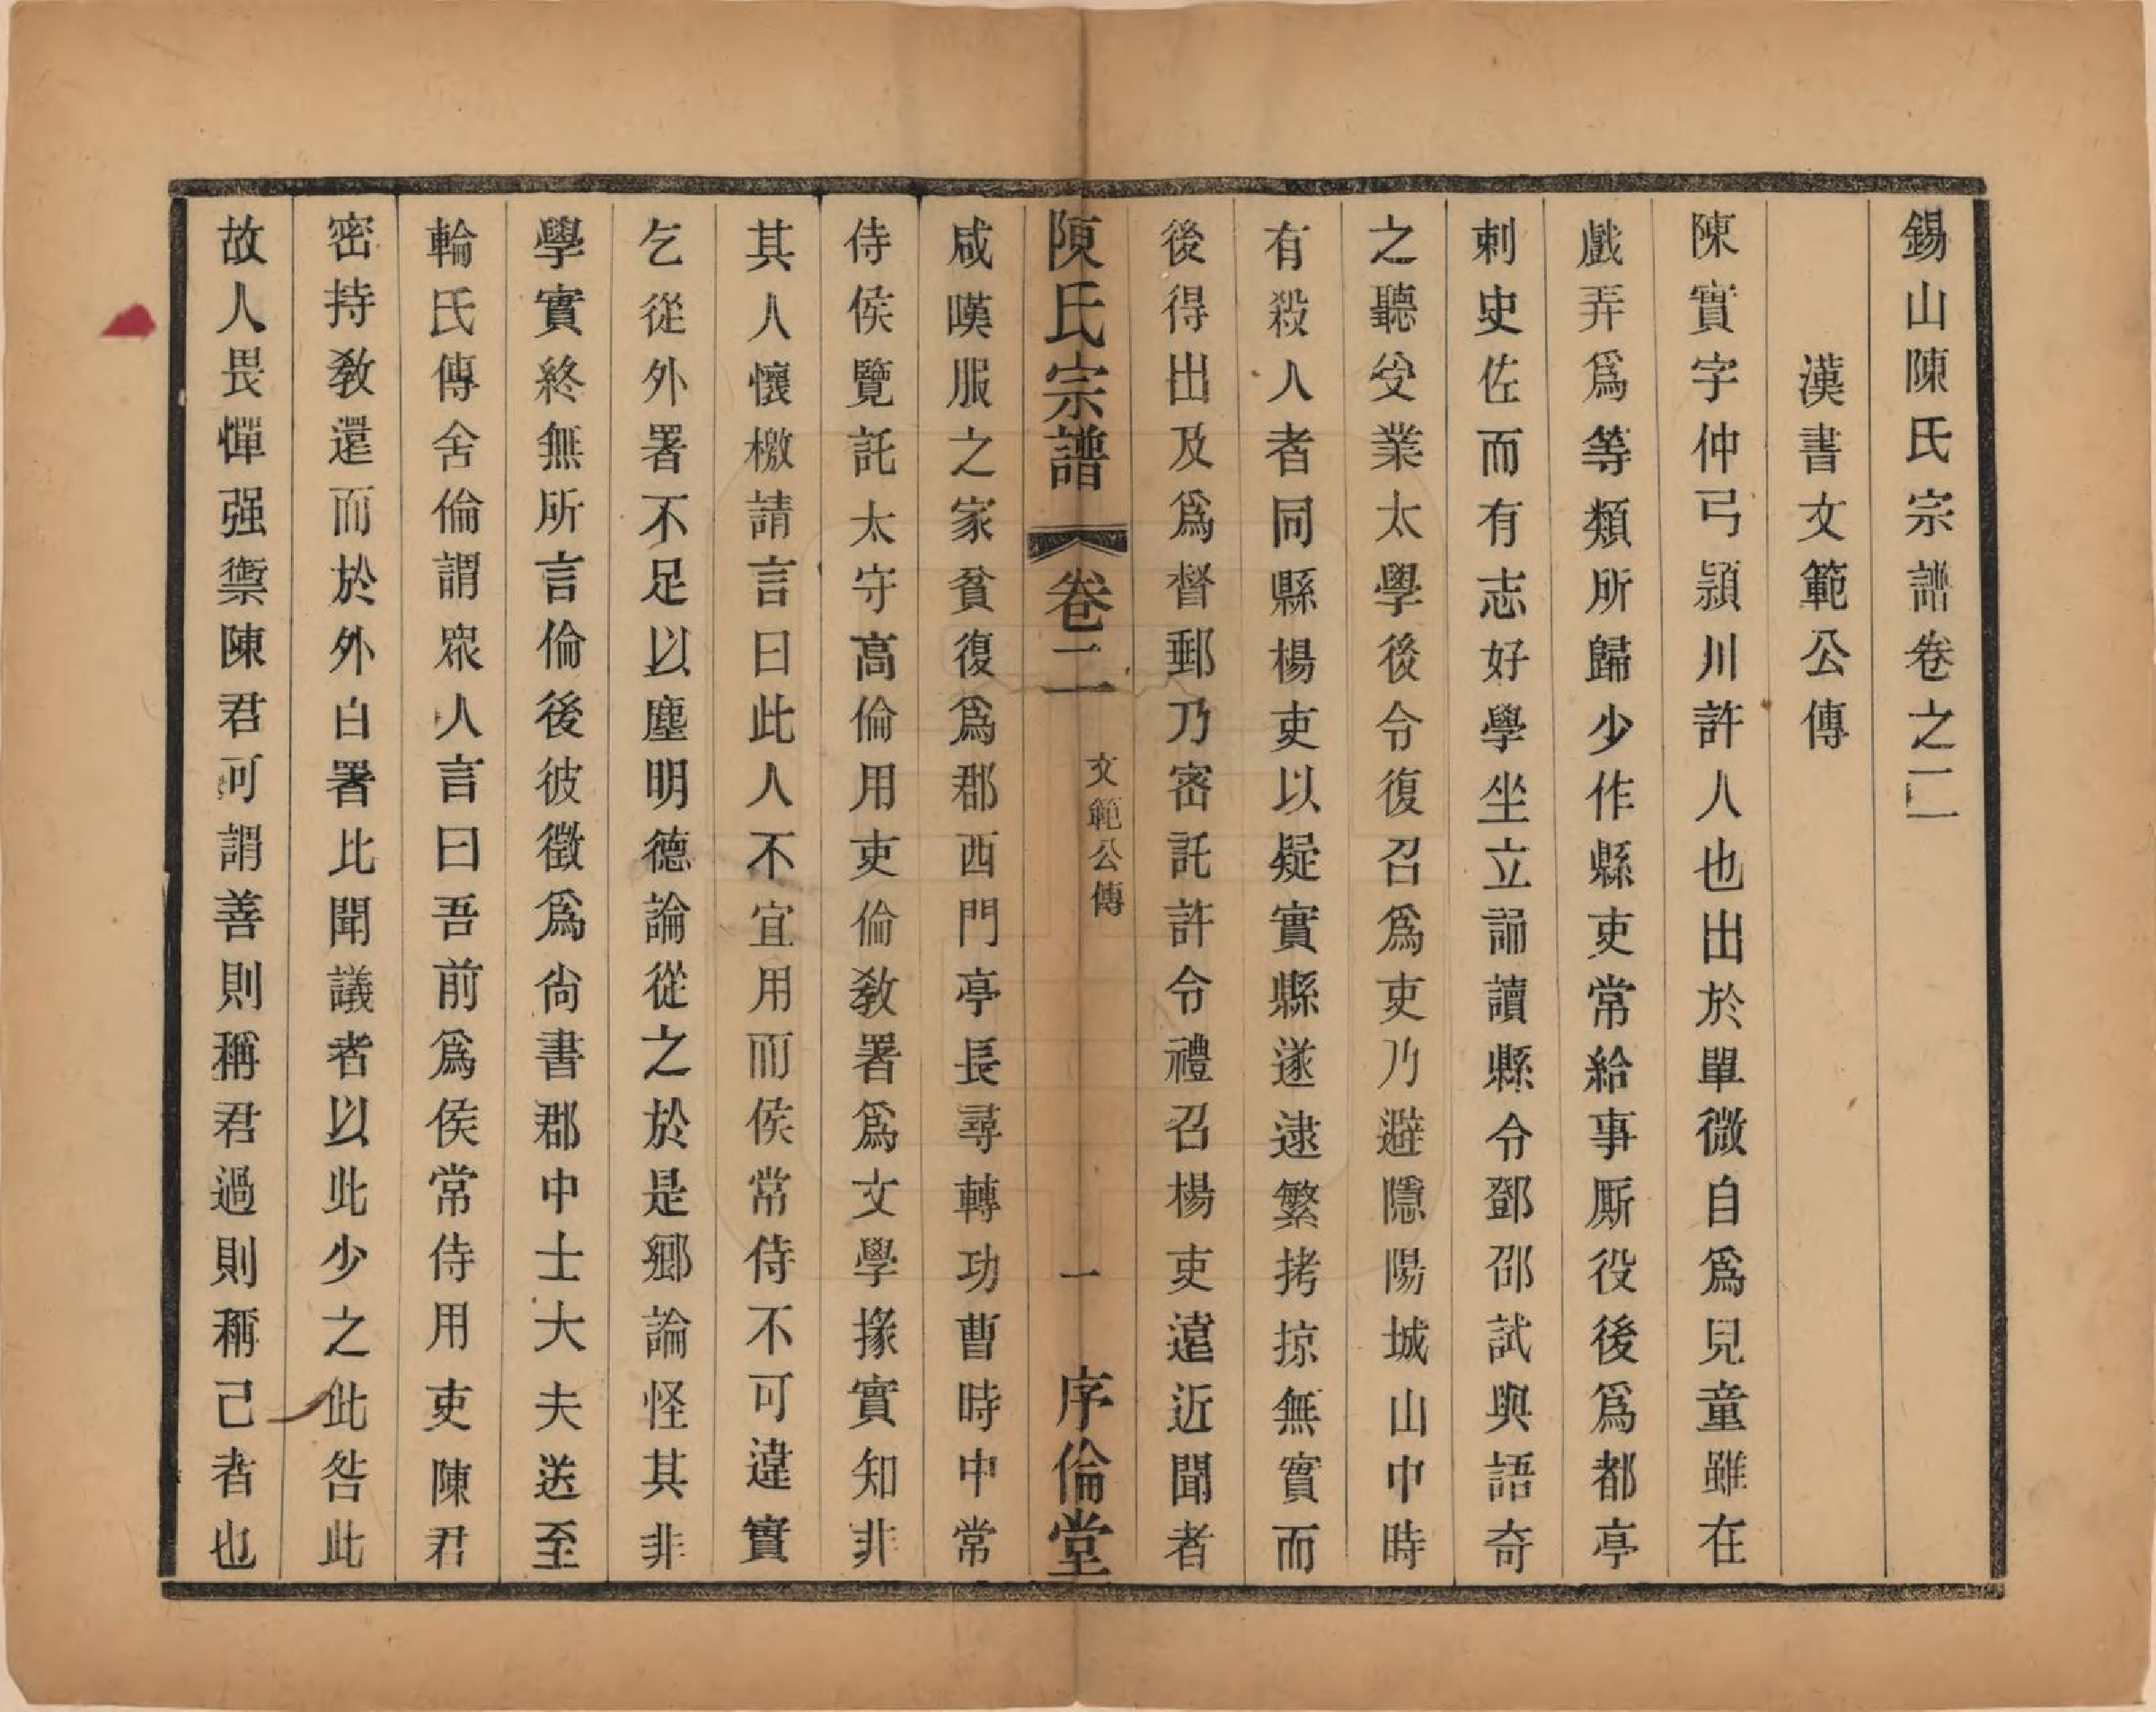 錫山陳氏宗譜卷之二
漢書文範公傳
陳實字仲弓潁川許人也出於單微自爲兒童雖在
戲弄爲等類所歸少作縣吏常給事厮役後爲都亭
刺史佐而有志好學坐立誦讀縣令鄧邵試與語奇
之聽受業太學後令復召爲吏乃避隱陽城山中時
有殺人者同縣楊吏以疑實縣遂逮繫拷掠無實而
後得出及爲督郵乃密託許令禮召楊吏遠近聞者
陳氏宗譜 卷二 文範公傳 一 序倫堂
咸嘆服之家貧復爲郡西門亭長尋轉功曹時中常
侍侯覽託太守高倫用吏倫敎署爲文學掾實知非
其人懷檄請言曰此人不宜用而侯常侍不可違實
乞從外署不足以塵明德論從之於是鄉論怪其非
學實終無所言倫後彼徵爲尙書郡中士大夫送至
輪氏傳舍倫謂衆人言曰吾前爲侯常侍用吏陳君
密持敎還而於外白署比聞議者以此少之此咎此
故人畏憚强禦陳君可謂善則稱君過則稱己者也